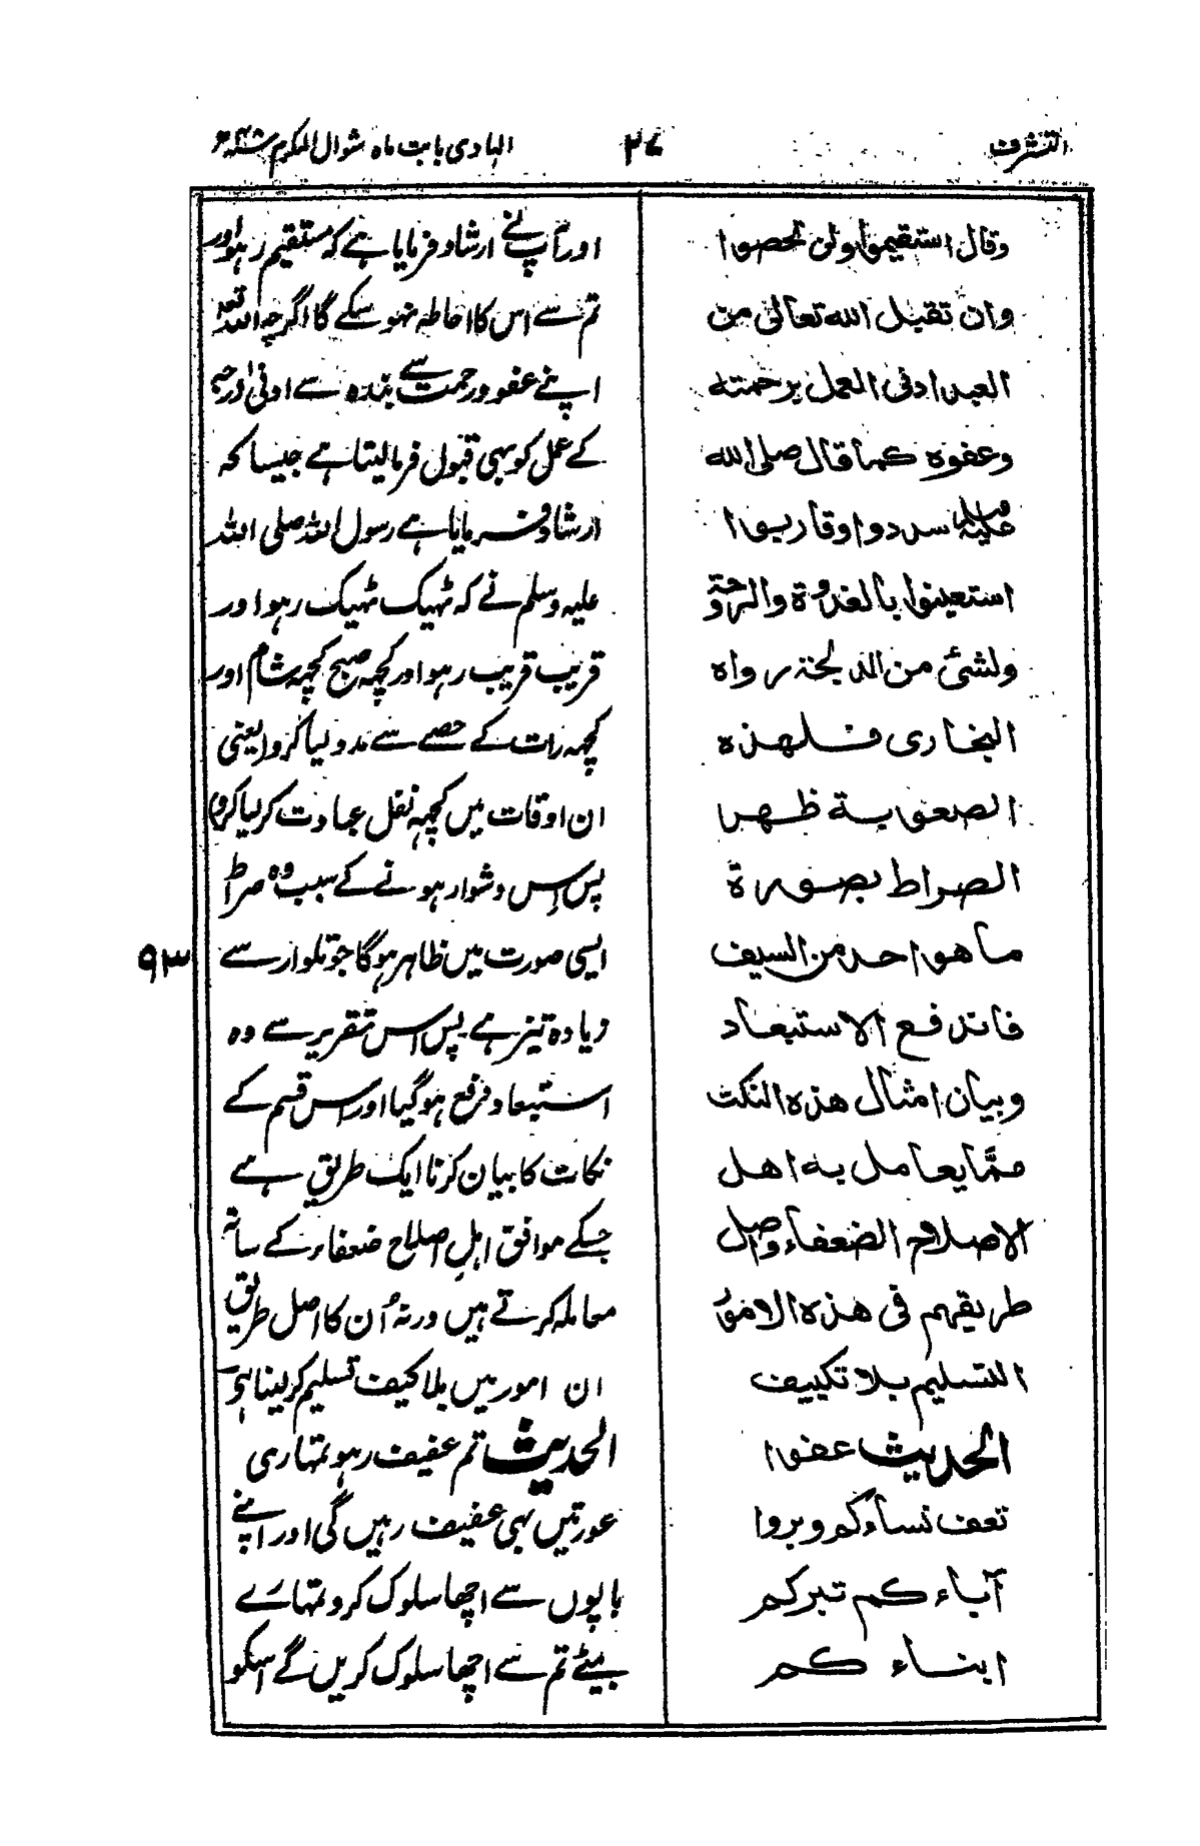 التشرف
۲۷
الہادی بابت ماہ شوال المکرم
وقال استقیموا ولن تحصوا
وان تقبل الله تعالیٰ من
العبد ادنی العمل برحمته
وعفوه کما قال صلی الله
علیه وسلم سددوا وقاربوا
استعینوا بالغدوة والروحة
ولشئ من الدلجة رواه
البخاری فلهذه
الصعوبة ظهر
الصراط بصورة
ما هو احد من السیف
فاندفع الاستبعاد
وبیان امثال هذه النکت
ممّا یعامل به اهل
الاصلاح الضعفاء واصل
طریقهم فی هذه الامور
التسلیم بلا تکییف
الحدیث عفوا
تعف نساءکم وبروا
آباءکم تبرکم
ابناءکم
اور آپ نے ارشاد فرمایا ہے کہ مستقیم رہو اور
تم سے اس کا احاطہ نہو سکے گا اگرچہ اللہ تعالیٰ
اپنے عفو و رحمت سے بندہ سے ادنیٰ درجہ
کے عمل کو بھی قبول فرما لیتا ہے جیسا کہ
ارشاد فرمایا ہے رسول اللہ صلی اللہ
علیہ وسلم نے کہ ٹہیک ٹہیک رہو اور
قریب قریب رہو اور کچہہ صبح کچہہ شام اور
کچہہ رات کے حصے سے مدد لیا کرو (یعنی
ان اوقات میں کچہہ نفل عبادت کر لیا کرو)
پس اس دشوار ہونے کے سبب وہ صراط
ایسی صورت میں ظاہر ہوگا جو تلوار سے
۹۳
زیادہ تیز ہے پس اس تقریر سے وہ
استبعاد رفع ہوگیا اور اس قسم کے
نکات کا بیان کرنا ایک طریق ہے
جسکے موافق اہلِ اصلاح ضعفاء کے ساتہ
معاملہ کرتے ہیں ورنہ اُن کا اصل طریق
ان امور میں بلا کیف تسلیم کر لینا ہے
الحدیث تم عفیف رہو تمہاری
عورتیں بہی عفیف رہیں گی اور اپنے
باپوں سے اچھا سلوک کرو تمہارے
بیٹے تم سے اچھا سلوک کریں گے اسکو